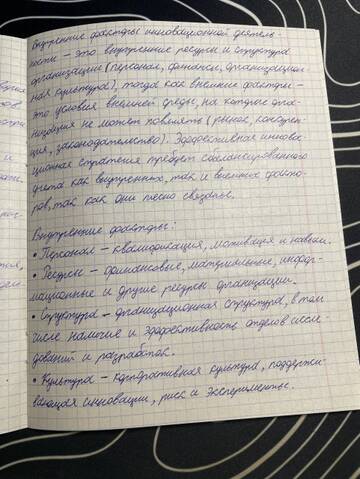 Внутренние факторы инновационной деятель-
ности - это внутренние ресурсы и структура
организации (персонал, финансы, организацион-
ная культура), тогда как внешние факторы -
это условия внешней среды, на которые орга-
низация не может повлиять (рынок, конкурен-
ция, законодательство). Эффективная иннова-
ционная стратегия требует сбалансированного
учета как внутренних, так и внешних факто-
ров, так как они тесно связаны.
Внутренние факторы:
• Персонал - квалификация, мотивация и навыки.
• Ресурсы - финансовые, материальные, инфор-
мационные и другие ресурсы организации.
• Структура - организационная структура, в том
числе наличие и эффективность отделов иссле
дований и разработок.
• Культура - корпоративная культура, поддержи-
вающая инновации, риск и эксперименты.